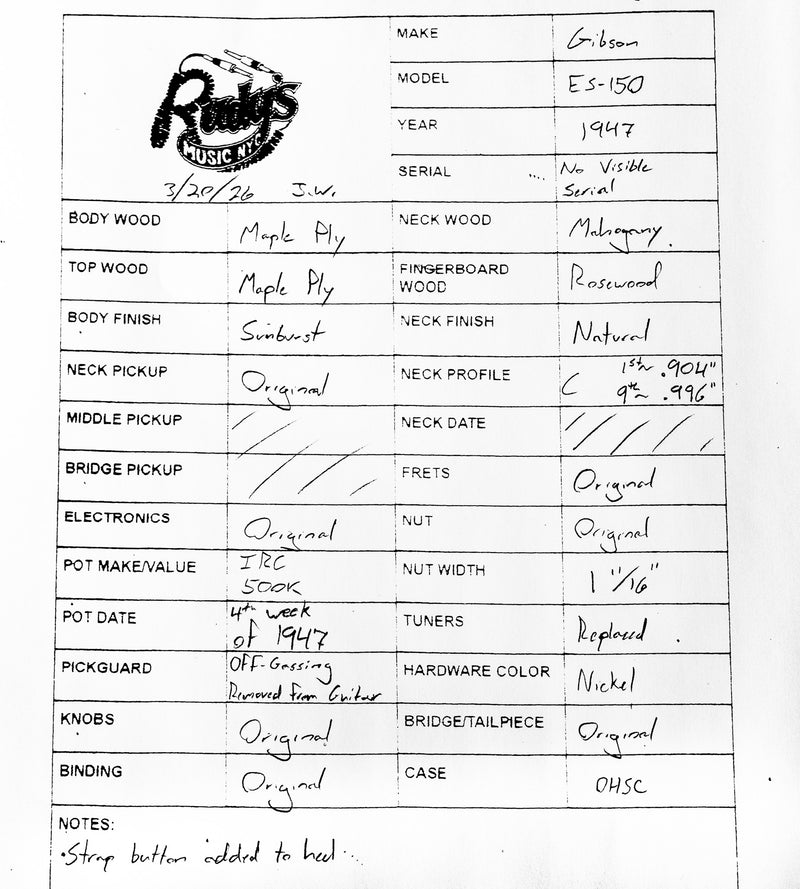 Rudy's
MUSIC NYC
3/20/26 J.W.
MAKE Gibson
MODEL ES-150
YEAR 1947
SERIAL No Visible
Serial
BODY WOOD Maple Ply NECK WOOD Mahogany
TOP WOOD Maple Ply FINGERBOARD
WOOD Rosewood
BODY FINISH Sunburst NECK FINISH Natural
NECK PICKUP Original NECK PROFILE C 1st~ .904"
9th~ .996"
MIDDLE PICKUP NECK DATE
BRIDGE PICKUP FRETS Original
ELECTRONICS Original NUT Original
POT MAKE/VALUE IRC
500K NUT WIDTH 1 11/16"
POT DATE 4th week
of 1947 TUNERS Replaced
PICKGUARD OFF-Gassing
Removed From Guitar HARDWARE COLOR Nickel
KNOBS Original BRIDGE/TAILPIECE Original
BINDING Original CASE OHSC
NOTES:
•Strap button added to heel